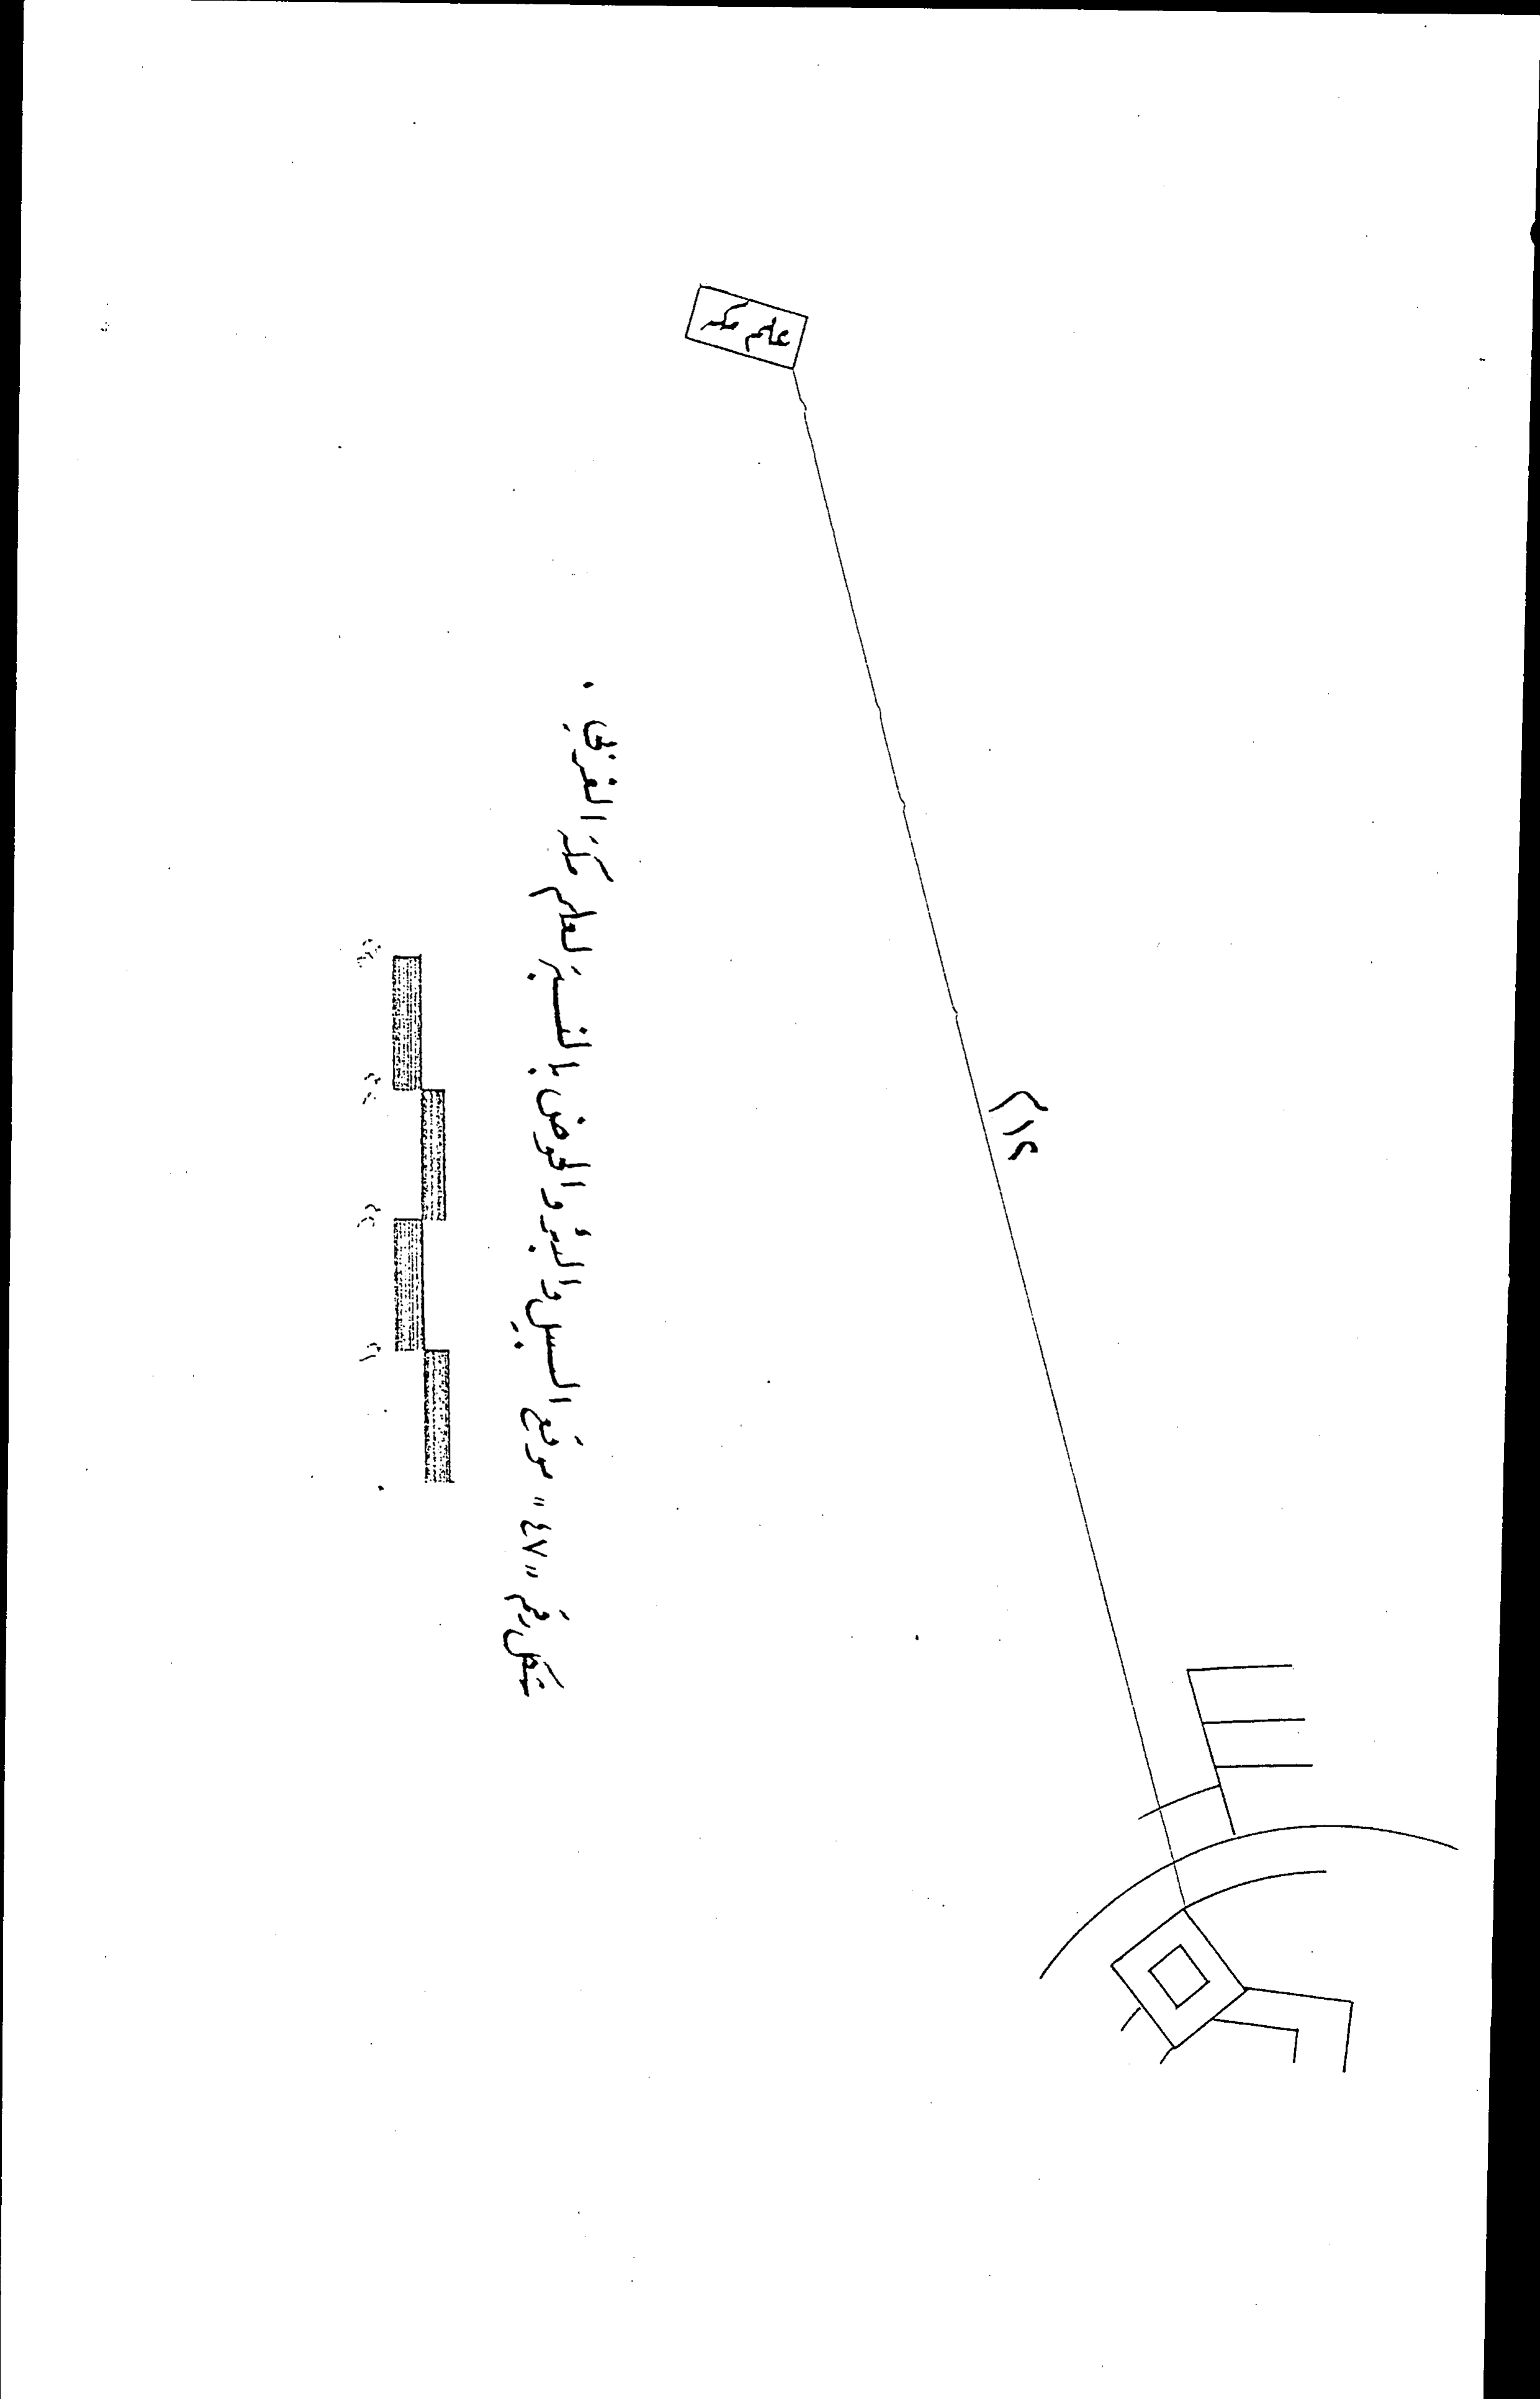 علم مكة
شكل رقم "٤٧" موقع السبيل والبئر والحوض بالنسبة لعلم مكة الغربي .